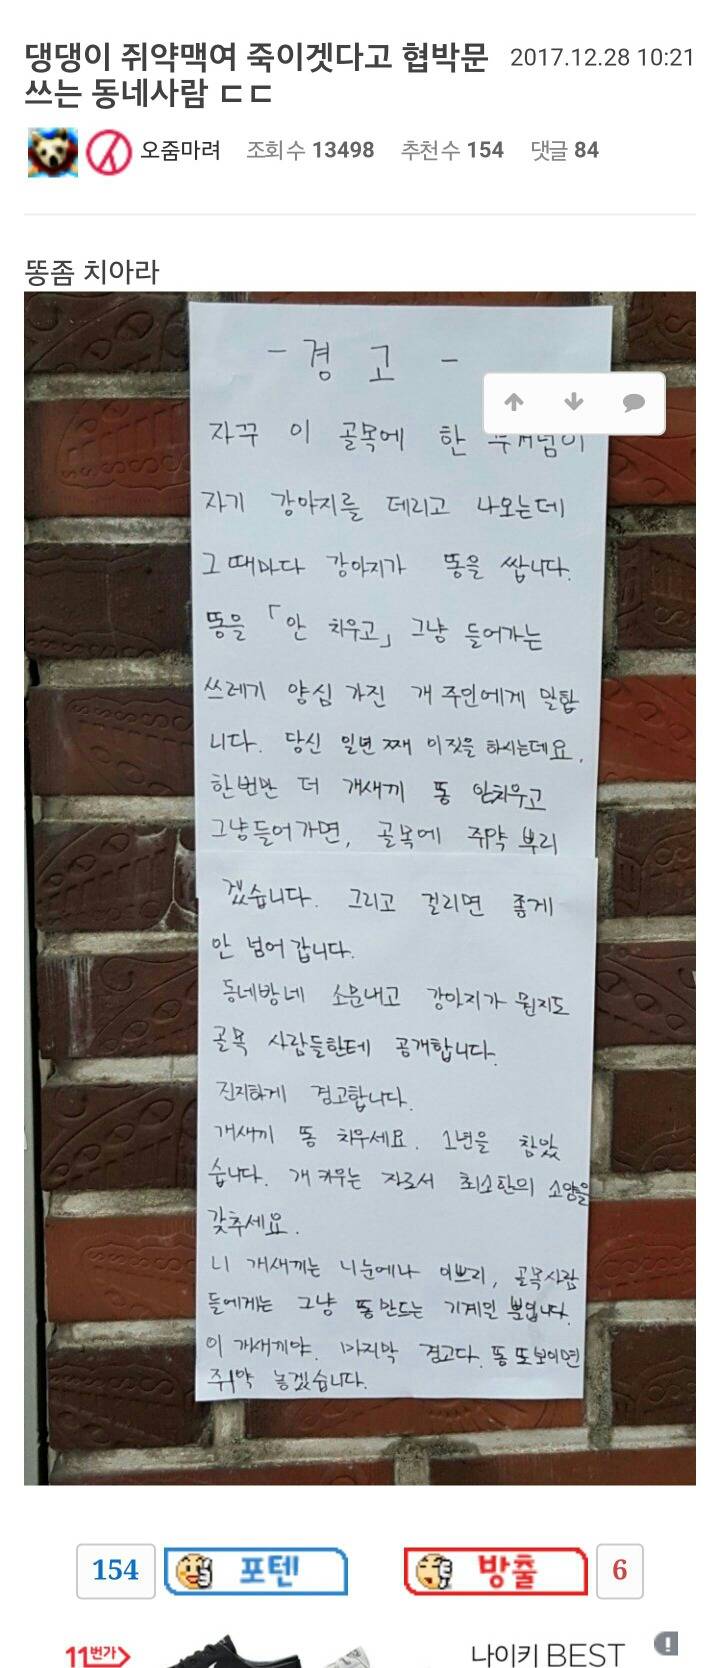 댕댕이 쥐약맥여 죽이겟다고 협박문
쓰는 동네사람 ㄷㄷ
2017.12.28 10:21
오줌마려 조회수 13498 추천수 154 댓글 84
똥좀 치아라
- 경 고 -
자꾸 이 골목에 한
자기 강아지를 데리고 나오는데
그때마다 강아지가 똥을 쌉니다.
똥을 「안 치우고」 그냥 들어가는
쓰레기 양심 가진 개 주인에게 말합
니다. 당신 일년 째 이짓을 하시는데요.
한번만 더 개새끼 똥 안치우고
그냥들어가면, 골목에 쥐약 뿌리
겠습니다. 그리고 걸리면 좋게
안 넘어갑니다.
동네방네 소문내고 강아지가 뭔지도
골목 사람들한테 공개합니다.
진지하게 경고합니다.
개새끼 똥 치우세요. 1년을 참았
습니다. 개 키우는 자로서 최소한의 소양을
갖추세요.
니 개새끼는 니눈에나 이쁘리, 골목사람
들에게는 그냥 똥만드는 기계일 뿐입니다.
이 개새끼야. 마지막 경고다. 똥 또보이면
쥐약 놓겠습니다.
154 포텐 방출 6
11번가 나이키 BEST